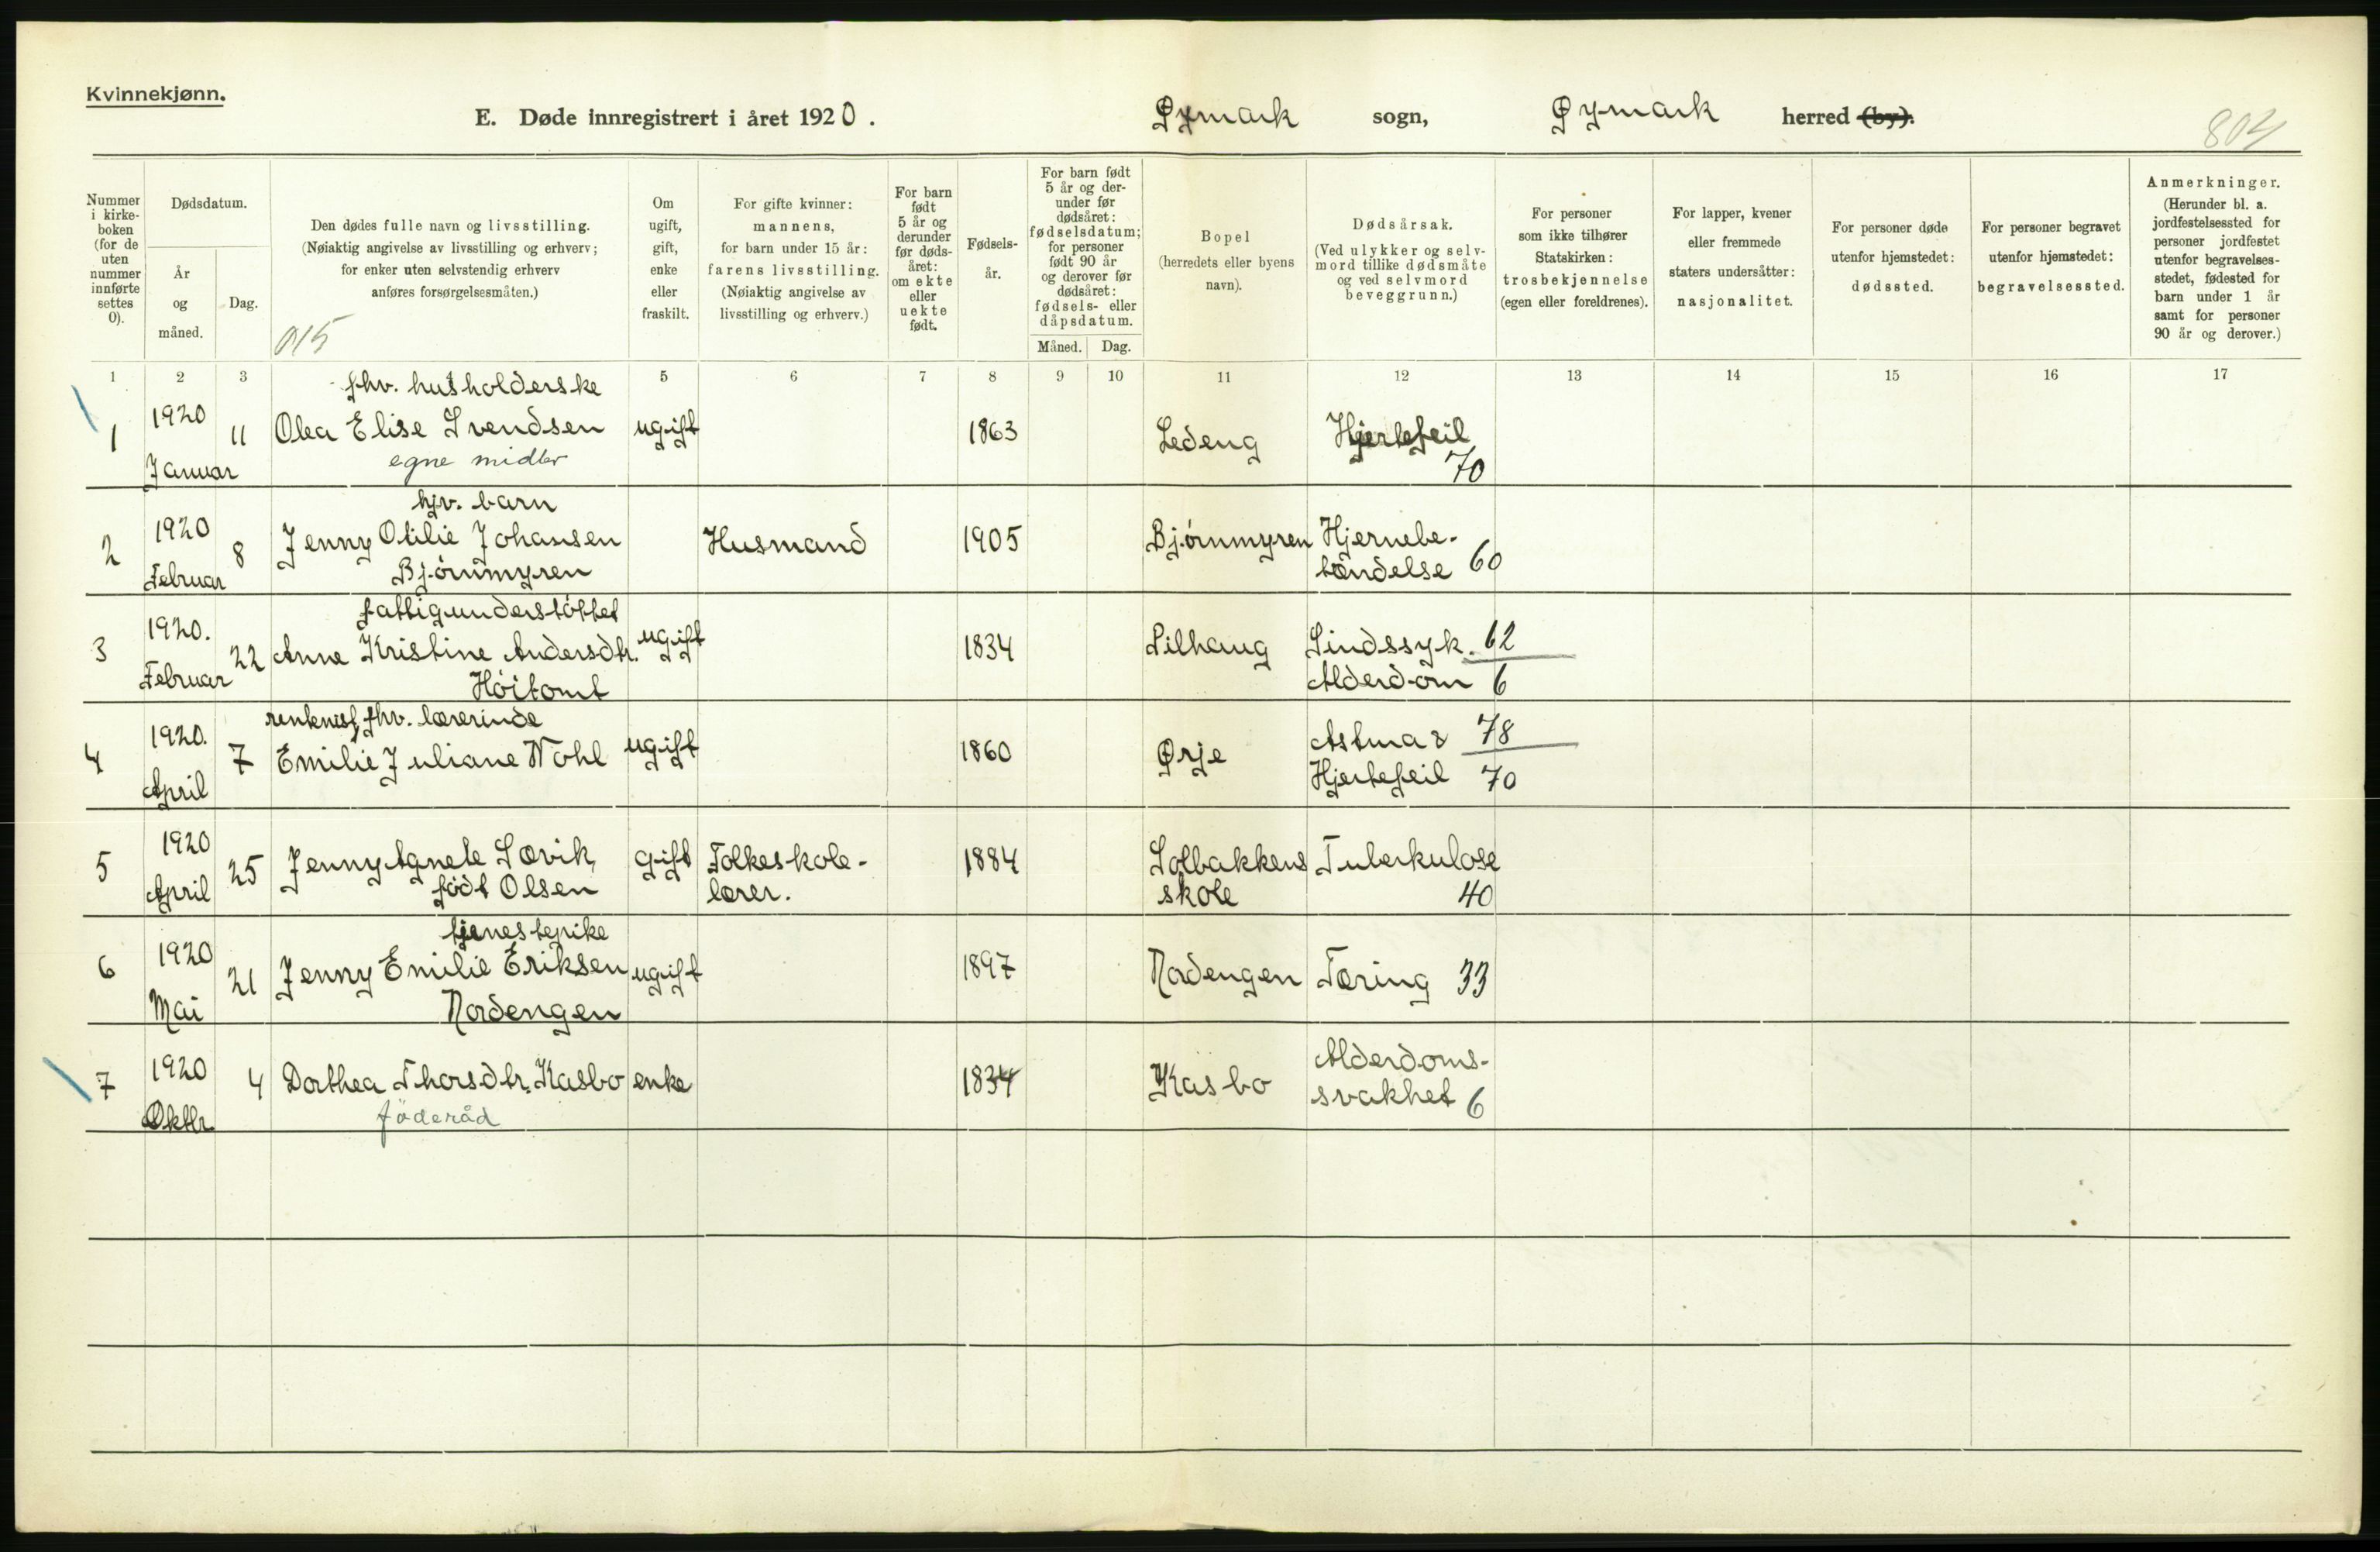 Kvinnekjønn.
E. Døde innregistrert i året 1920. Øymark sogn, Øymark herred (by).
804
Nummer i kirkeboken (for de uten nummer innførte settes 0).
Dødsdatum.
År og måned.
Dag.
Den dødes fulle navn og livsstilling.
(Nøiaktig angivelse av livsstilling og erhverv;
for enker uten selvstendig erhverv
anføres forsørgelsesmåten.)
015
Om ugift, gift, enke eller fraskilt.
For gifte kvinner:
mannens,
for barn under 15 år:
farens livsstilling.
(Nøiaktig angivelse av
livsstilling og erhverv.)
For barn født 5 år og derunder før dødsåret: om ekte eller uekte født.
Fødselsår.
For barn født 5 år og derunder før dødsåret: fødselsdatum; for personer født 90 år og derover før dødsåret: fødsels- eller dåpsdatum.
Måned. Dag.
Bopel
(herredets eller byens
navn).
Dødsårsak.
(Ved ulykker og selvmord tillike dødsmåte
og ved selvmord
beveggrunn.)
For personer
som ikke tilhører
Statskirken:
trosbekjennelse
(egen eller foreldrenes).
For lapper, kvener
eller fremmede
staters undersåtter:
nasjonalitet.
For personer døde
utenfor hjemstedet:
dødssted.
For personer begravet
utenfor hjemstedet:
begravelsessted.
Anmerkninger.
(Herunder bl. a.
jordfestelsessted for
personer jordfestet
utenfor begravelses-
stedet, fødested for
barn under 1 år
samt for personer
90 år og derover.)
1 2 3 5 6 7 8 9 10 11 12 13 14 15 16 17
fhv. husholderske
1 1920 Januar 11 Olea Elise Svendsen ugift 1863 Ledeng Hjertefeil 70
egne midler
hjv. barn
2 1920 Februar 8 Jenny Otilie Johansen Husmand 1905 Bjørnmyren Hjernebe-
Bjørnmyren tændelse 60
fattigunderstøttet
3 1920. Februar 22 Anne Kristine Andersdtr. ugift 1834 Lilhaug Sindssyk. 62
Høitomt Alderdom 6
rentenist, fhv. lærerinde
4 1920. April 7 Emilie Juliane Nohl ugift 1860 Ørje Astma & 78
Hjertefeil 70
5 1920 April 25 Jenny Agnete Løvik, gift Folkeskole- 1884 Solbakkens Tuberkulose
født Olsen lærer. skole 40
tjenestepike
6 1920 Mai 21 Jenny Emilie Eriksen ugift 1897 Nordengen Tæring 33
Nordengen
7 1920 Oktbr. 4 Dorthea Thorsdtr. Kasbo enke 1834 Kasbo Alderdoms-
föderåd svakhet 6